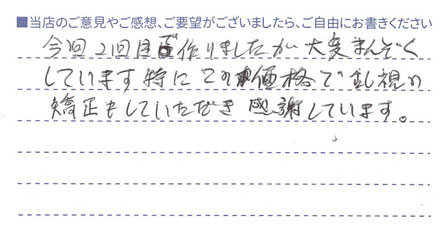 ■当店のご意見やご感想、ご要望がございましたら、ご自由にお書きください
今回2回目で作りましたが大変まんぞく
しています特にこの価格で乱視の
矯正もしていただき感謝しています。